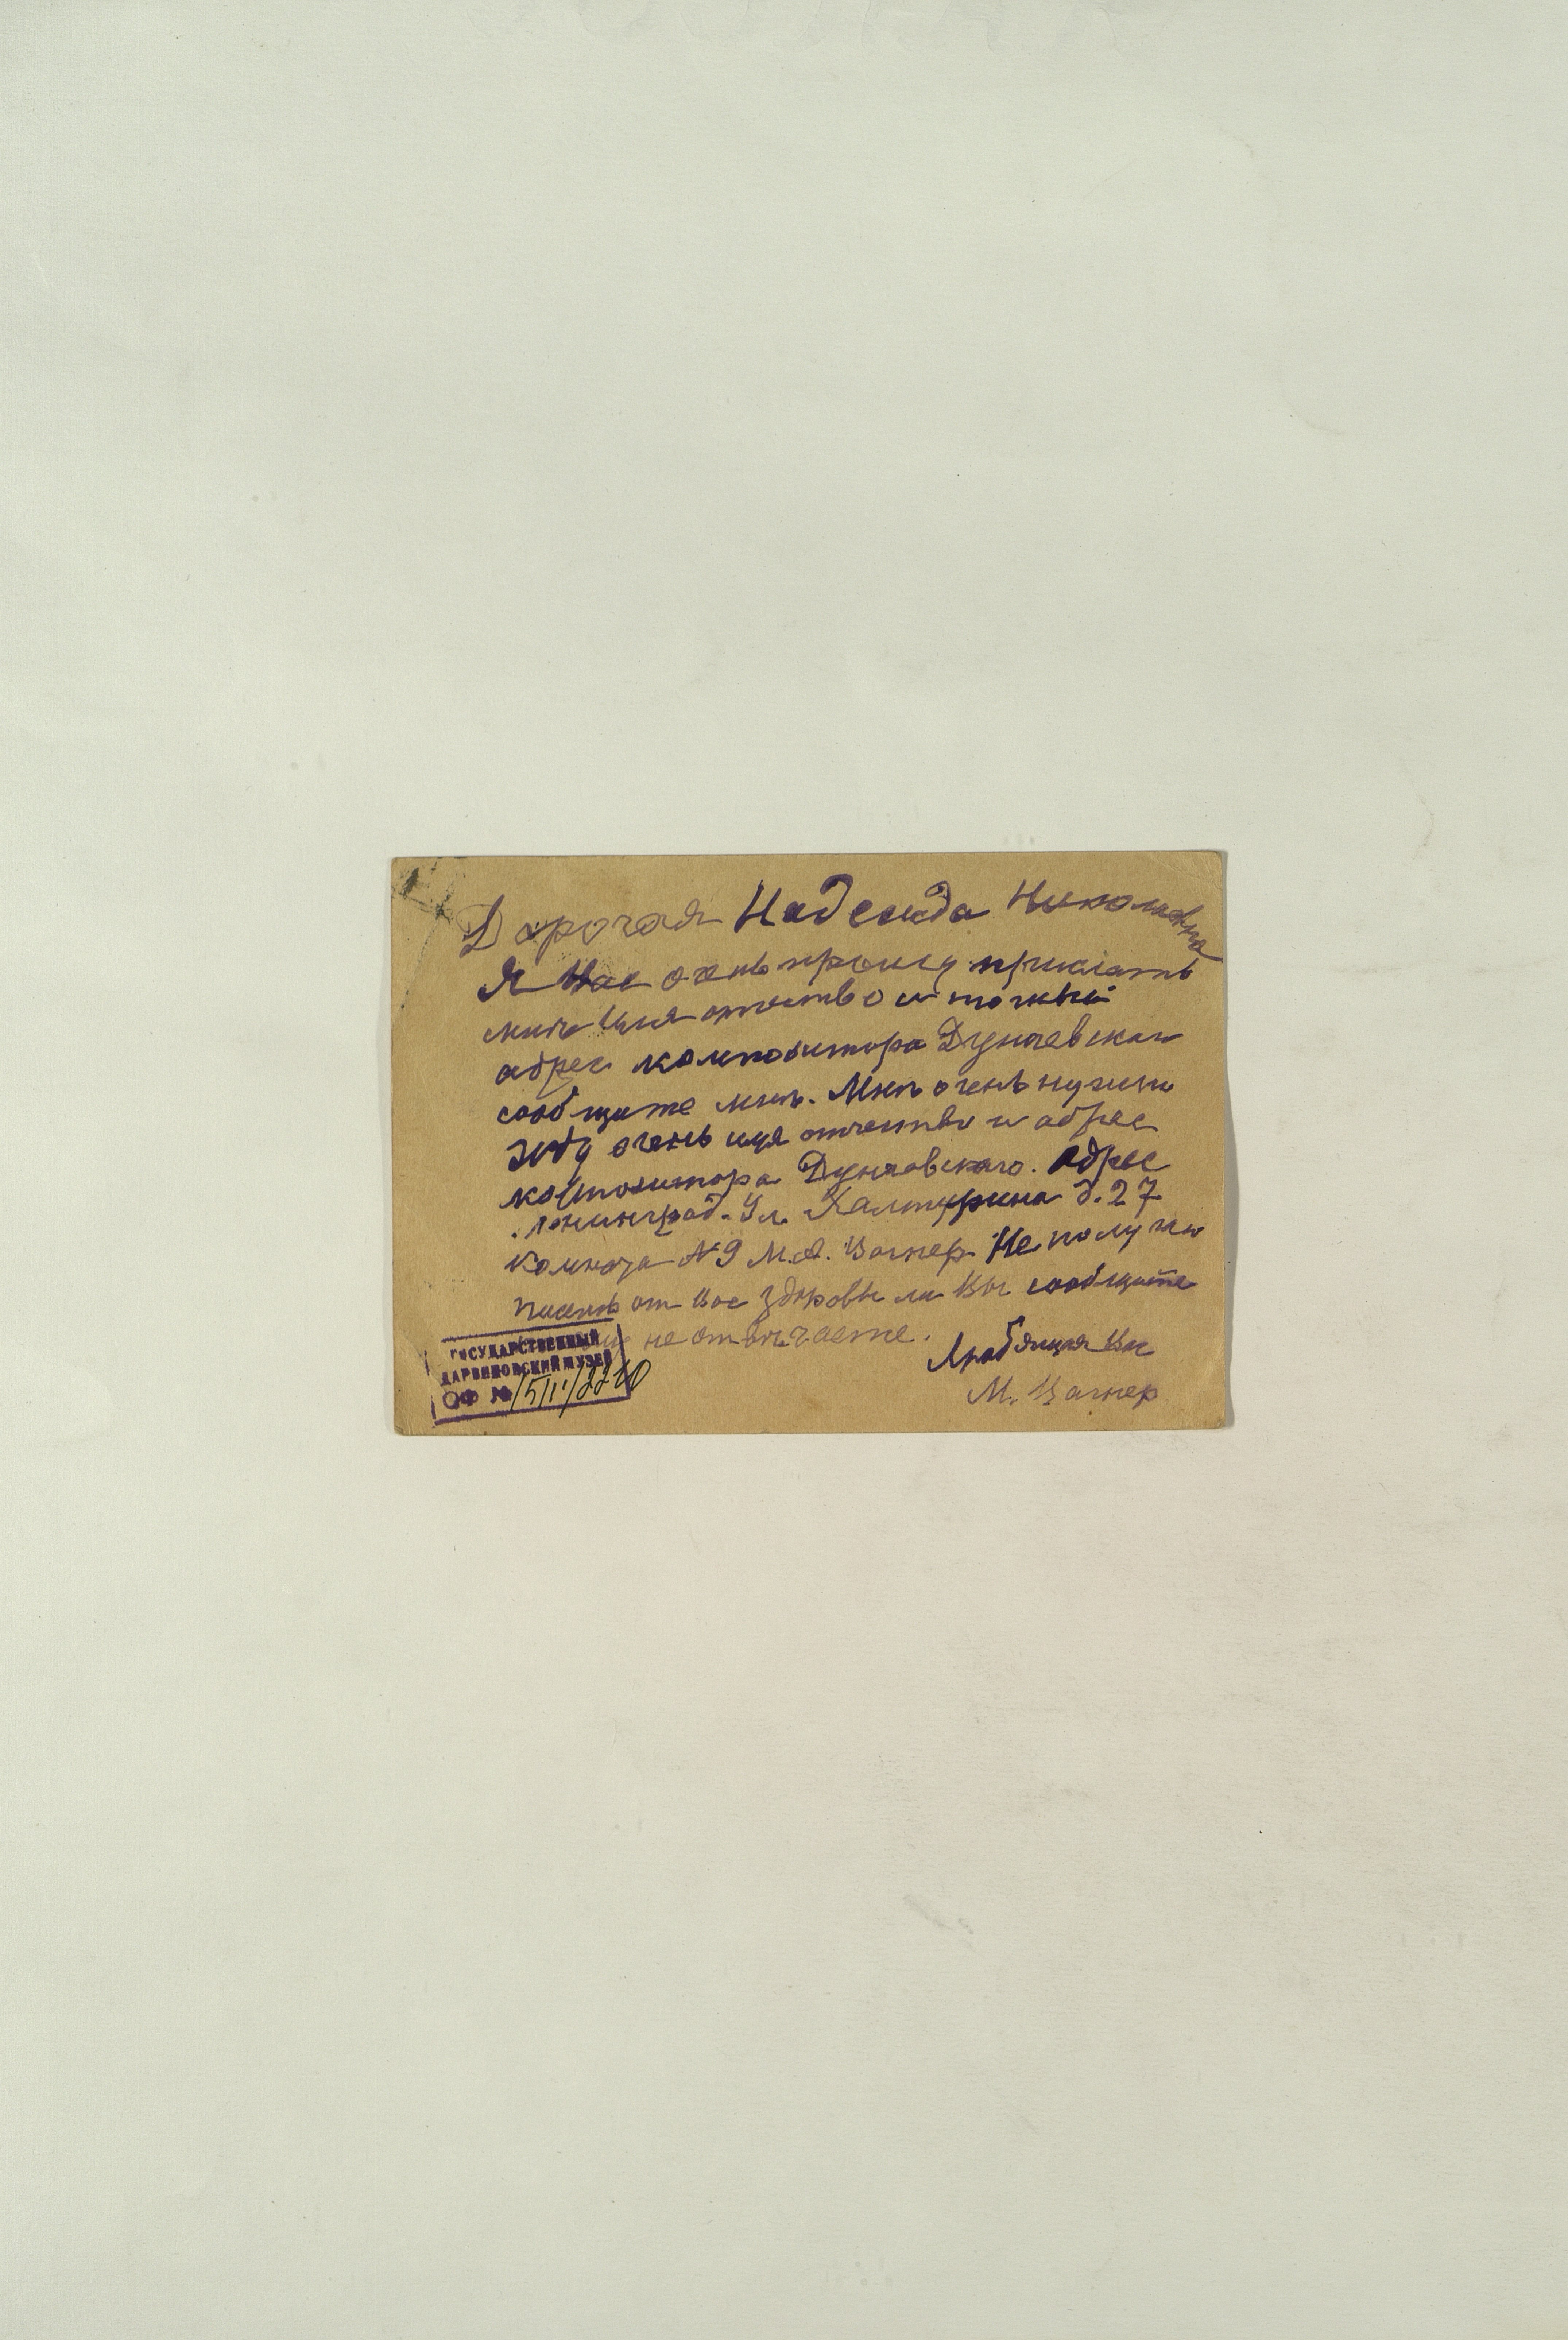 Дорогая Надежда Николаевна
Я Вас очень прошу прислать
мнѣ имя отчество и точный
адрес композитора Дунаевскаго
сообщите мнѣ. Мнѣ очень нужно
жду очень имя отчество и адрес
композитора Дунаевскаго. Адрес
Ленинград. Ул. Халтурина д. 27
комната № 9 М.А. Вагнер. Не получаю
писемъ от Вас здоровы ли Вы сообщите
не отвѣчаете.
Любящая Вас
М. Вагнер
ГОСУДАРСТВЕННЫЙ
ДАРВИНОВСКИЙ МУЗЕЙ
ОФ №